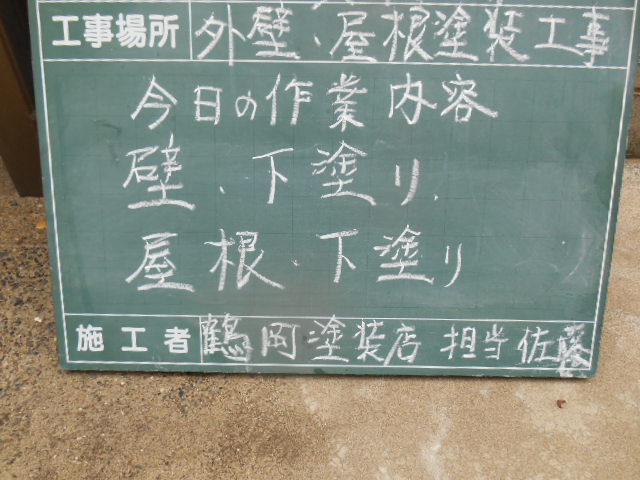 工事場所 外壁、屋根塗装工事
今日の作業内容
壁、下塗り、
屋根、下塗り
施工者 鶴岡塗装店 担当佐藤